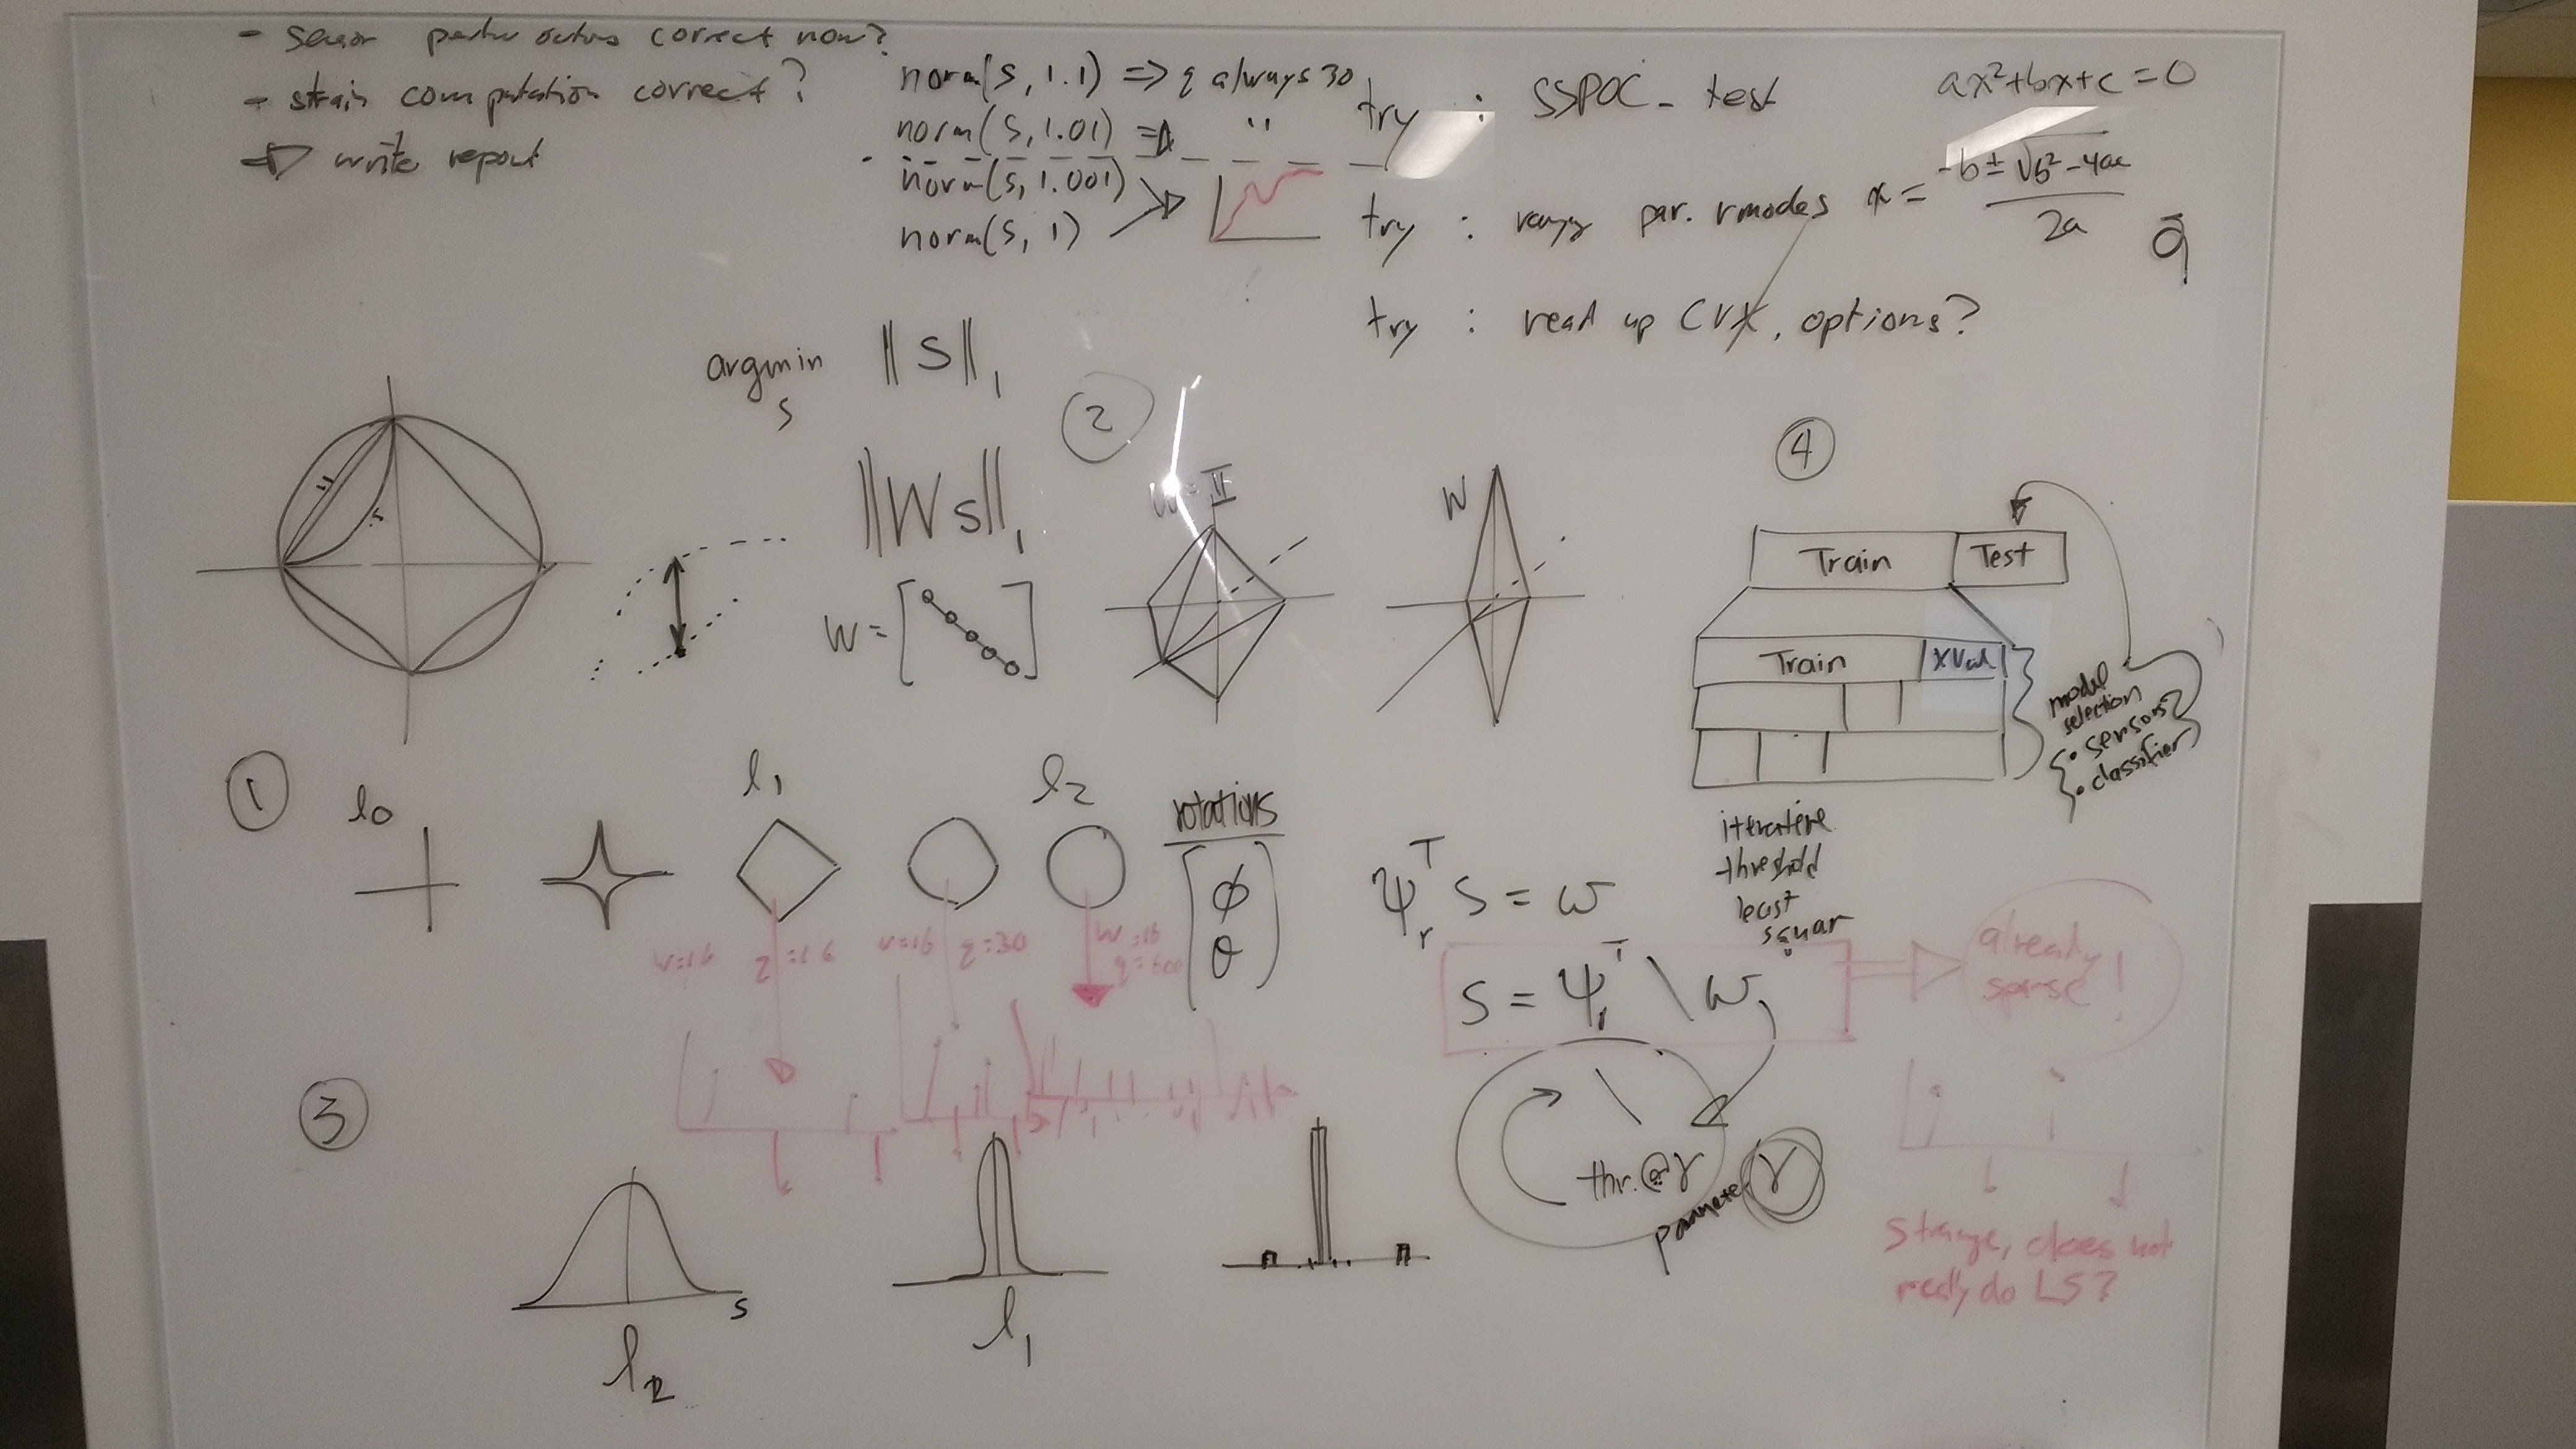 - sensor correct now?
- strain computation correct?
⇒ write report
norm(s, 1.1) => q always 30
norm(s, 1.01) => "
norm(s, 1.001)
norm(s, 1)
try : SSPOC_test
try : par. rmodes
try : read up CVX, options?
ax²+bx+c = 0
x = -b ± √b²-4ac / 2a
argmin ||s||₁
s
||Ws||₁
W =
②
W
④
Train Test
Train XVal
model
selection
• sensors
• classifier
①
l0
l1
l2
rotations
ϕ
θ
q = 16
q = 30
q = 600
Ψᵣᵀ s = w
iterative
threshold
least
squar
s = Ψᵣᵀ \ w
already
sparse!
\
thr. @ γ
parameter γ
strange, does not
really do LS?
③
s
l2
l1